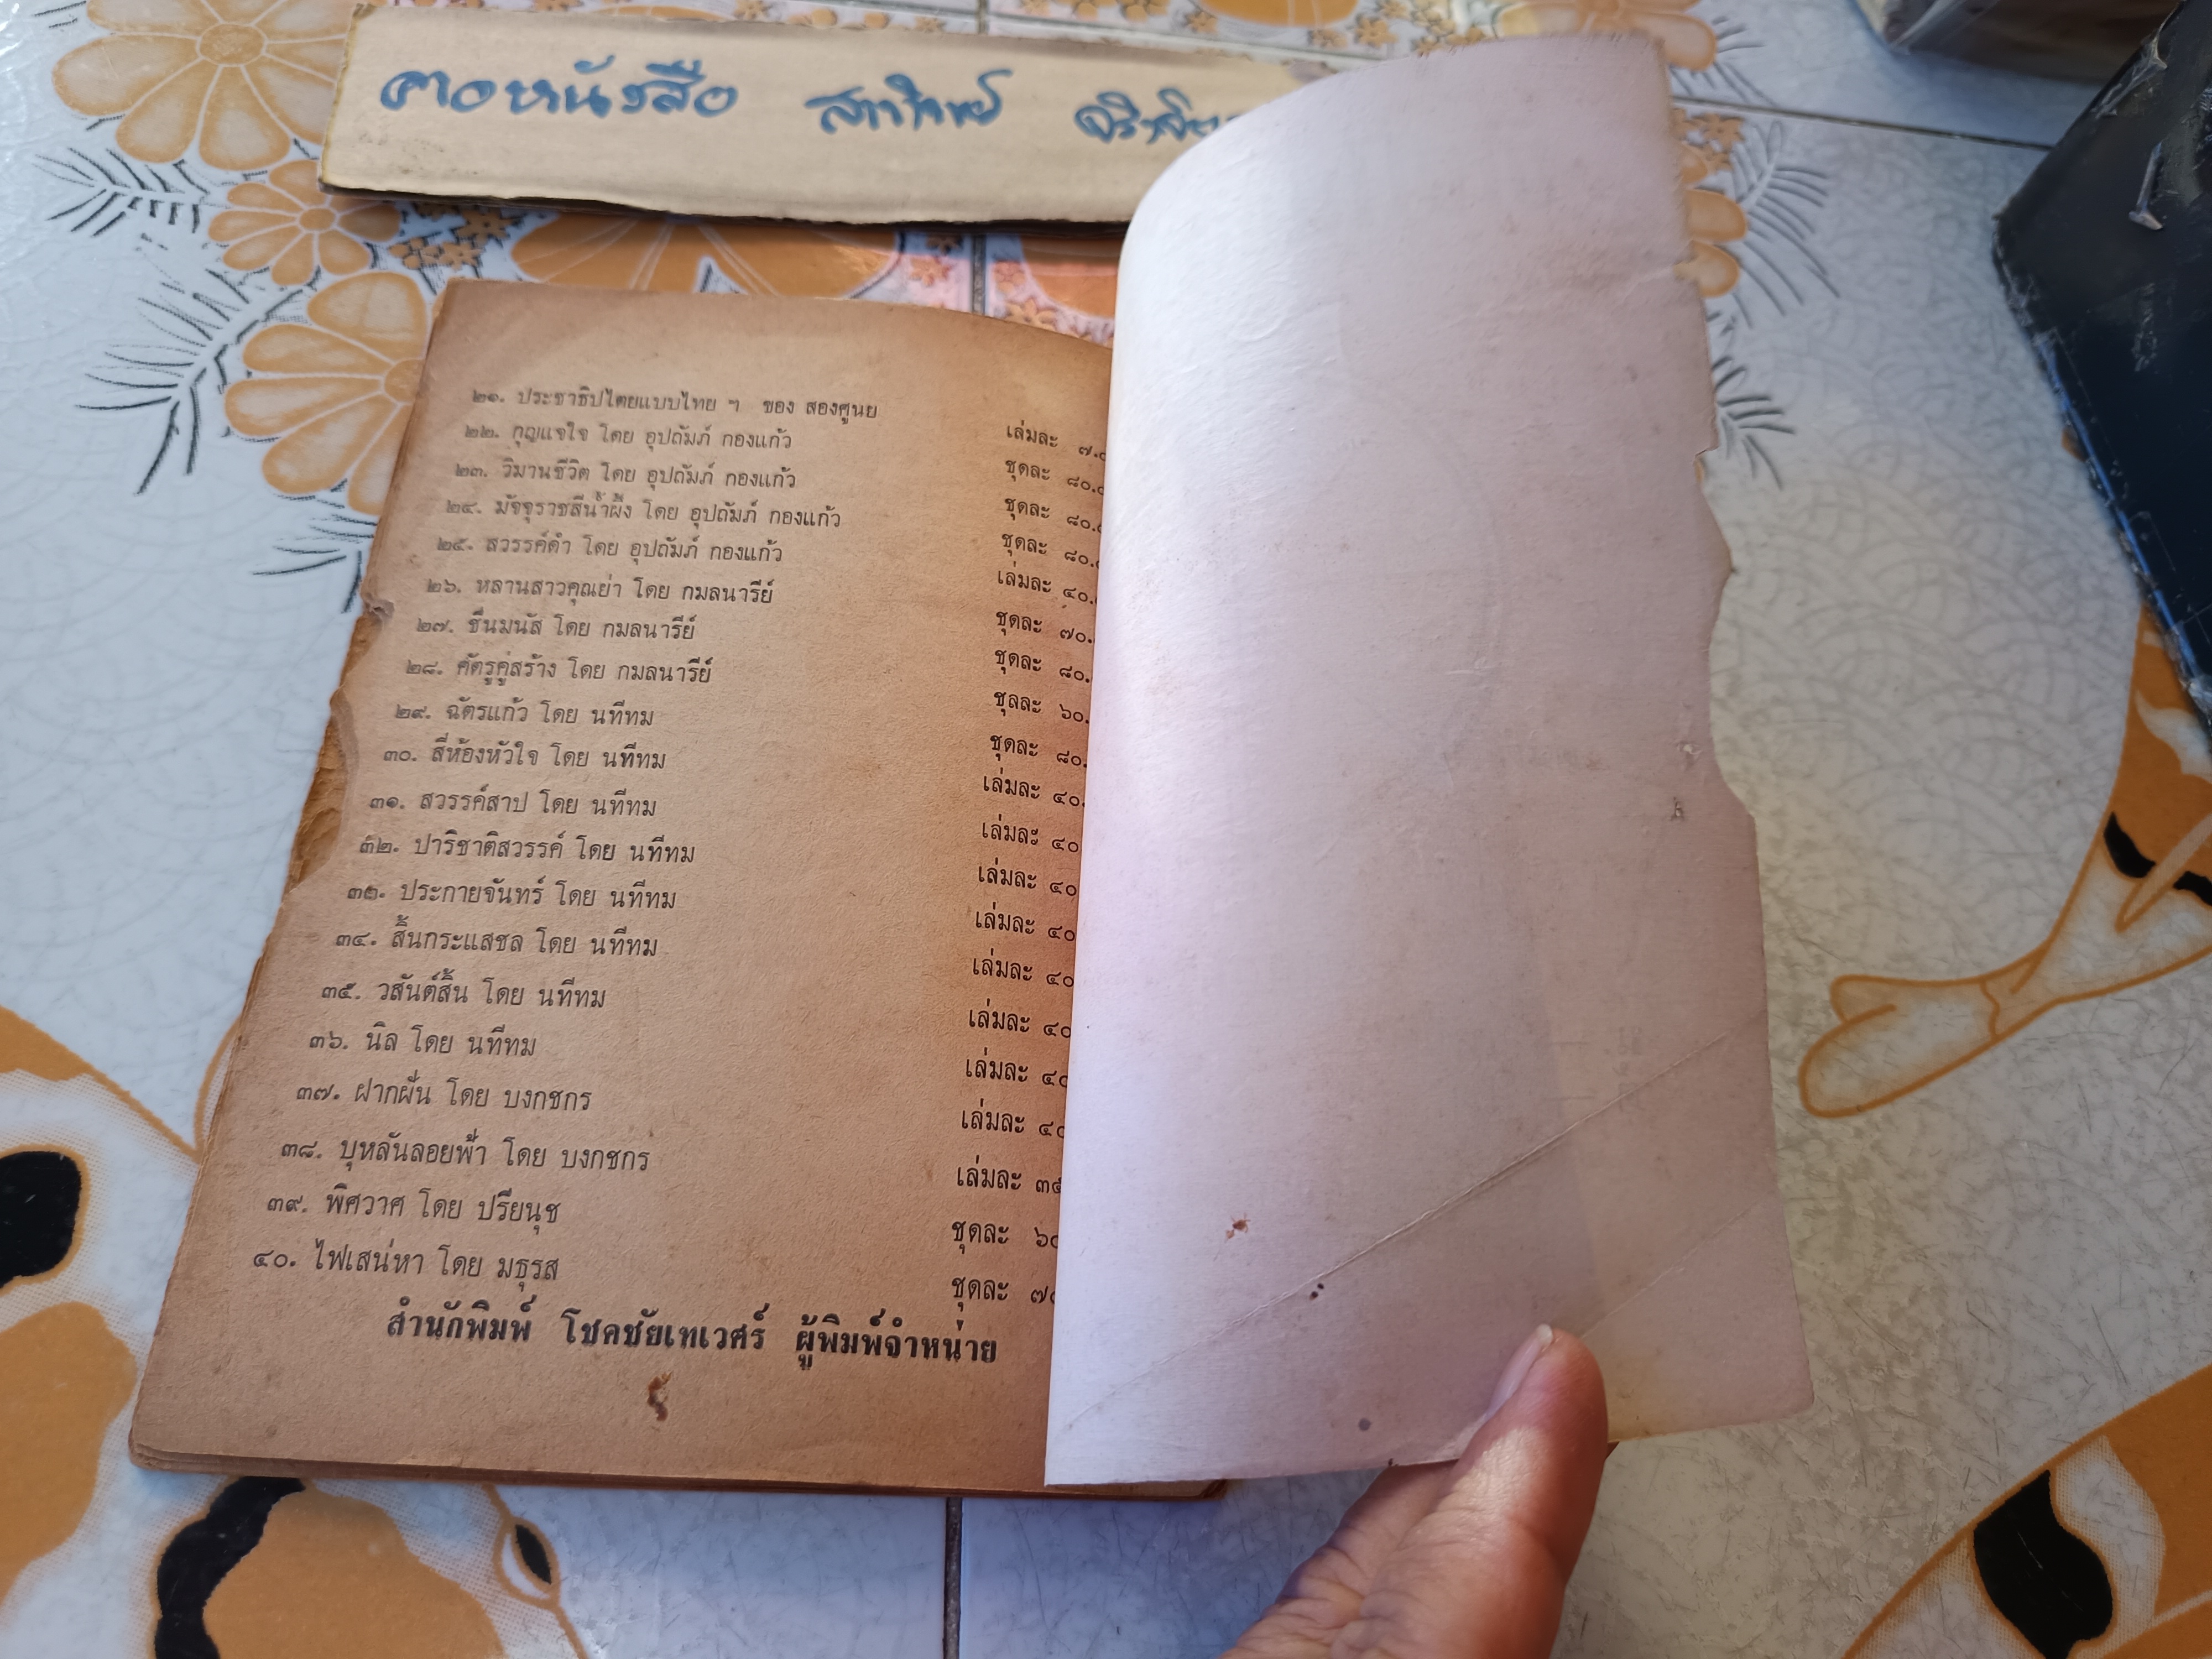 ๒๑. ประชาธิปไตยแบบไทย ๆ ของ สองศูนย เล่มละ ๗.
๒๒. กุญแจใจ โดย อุปถัมภ์ กองแก้ว ชุดละ ๘๐.
๒๓. วิมานชีวิต โดย อุปถัมภ์ กองแก้ว ชุดละ ๘๐.
๒๔. มัจจุราชสีน้ำผึ้ง โดย อุปถัมภ์ กองแก้ว ชุดละ ๘๐.
๒๕. สวรรค์ดำ โดย อุปถัมภ์ กองแก้ว เล่มละ ๔๐.
๒๖. หลานสาวคุณย่า โดย กมลนารีย์ ชุดละ ๗๐.
๒๗. ชื่นมนัส โดย กมลนารีย์ ชุดละ ๘๐.
๒๘. ศัตรูคู่สร้าง โดย กมลนารีย์ ชุลละ ๖๐.
๒๙. ฉัตรแก้ว โดย นทีทม ชุดละ ๘๐.
๓๐. สี่ห้องหัวใจ โดย นทีทม เล่มละ ๔๐.
๓๑. สวรรค์สาป โดย นทีทม เล่มละ ๔๐
๓๒. ปาริชาติสวรรค์ โดย นทีทม เล่มละ ๔๐
๓๓. ประกายจันทร์ โดย นทีทม เล่มละ ๔๐
๓๔. สิ้นกระแสชล โดย นทีทม เล่มละ ๔๐
๓๕. วสันต์สิ้น โดย นทีทม เล่มละ ๔๐
๓๖. นิล โดย นทีทม เล่มละ ๔๐
๓๗. ฝากผั่น โดย บงกชกร เล่มละ ๔๐
๓๘. บุหลันลอยฟ้า โดย บงกชกร เล่มละ ๓๕
๓๙. พิศวาศ โดย ปรียนุช ชุดละ ๖๐
๔๐. ไฟเสน่หา โดย มธุรส ชุดละ ๗๐
สำนักพิมพ์ โชคชัยเทเวศร์ ผู้พิมพ์จำหน่าย